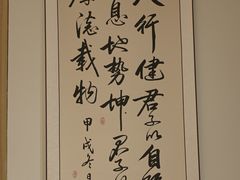 行健君子以自
息地勢坤君子
德載物
甲戌冬